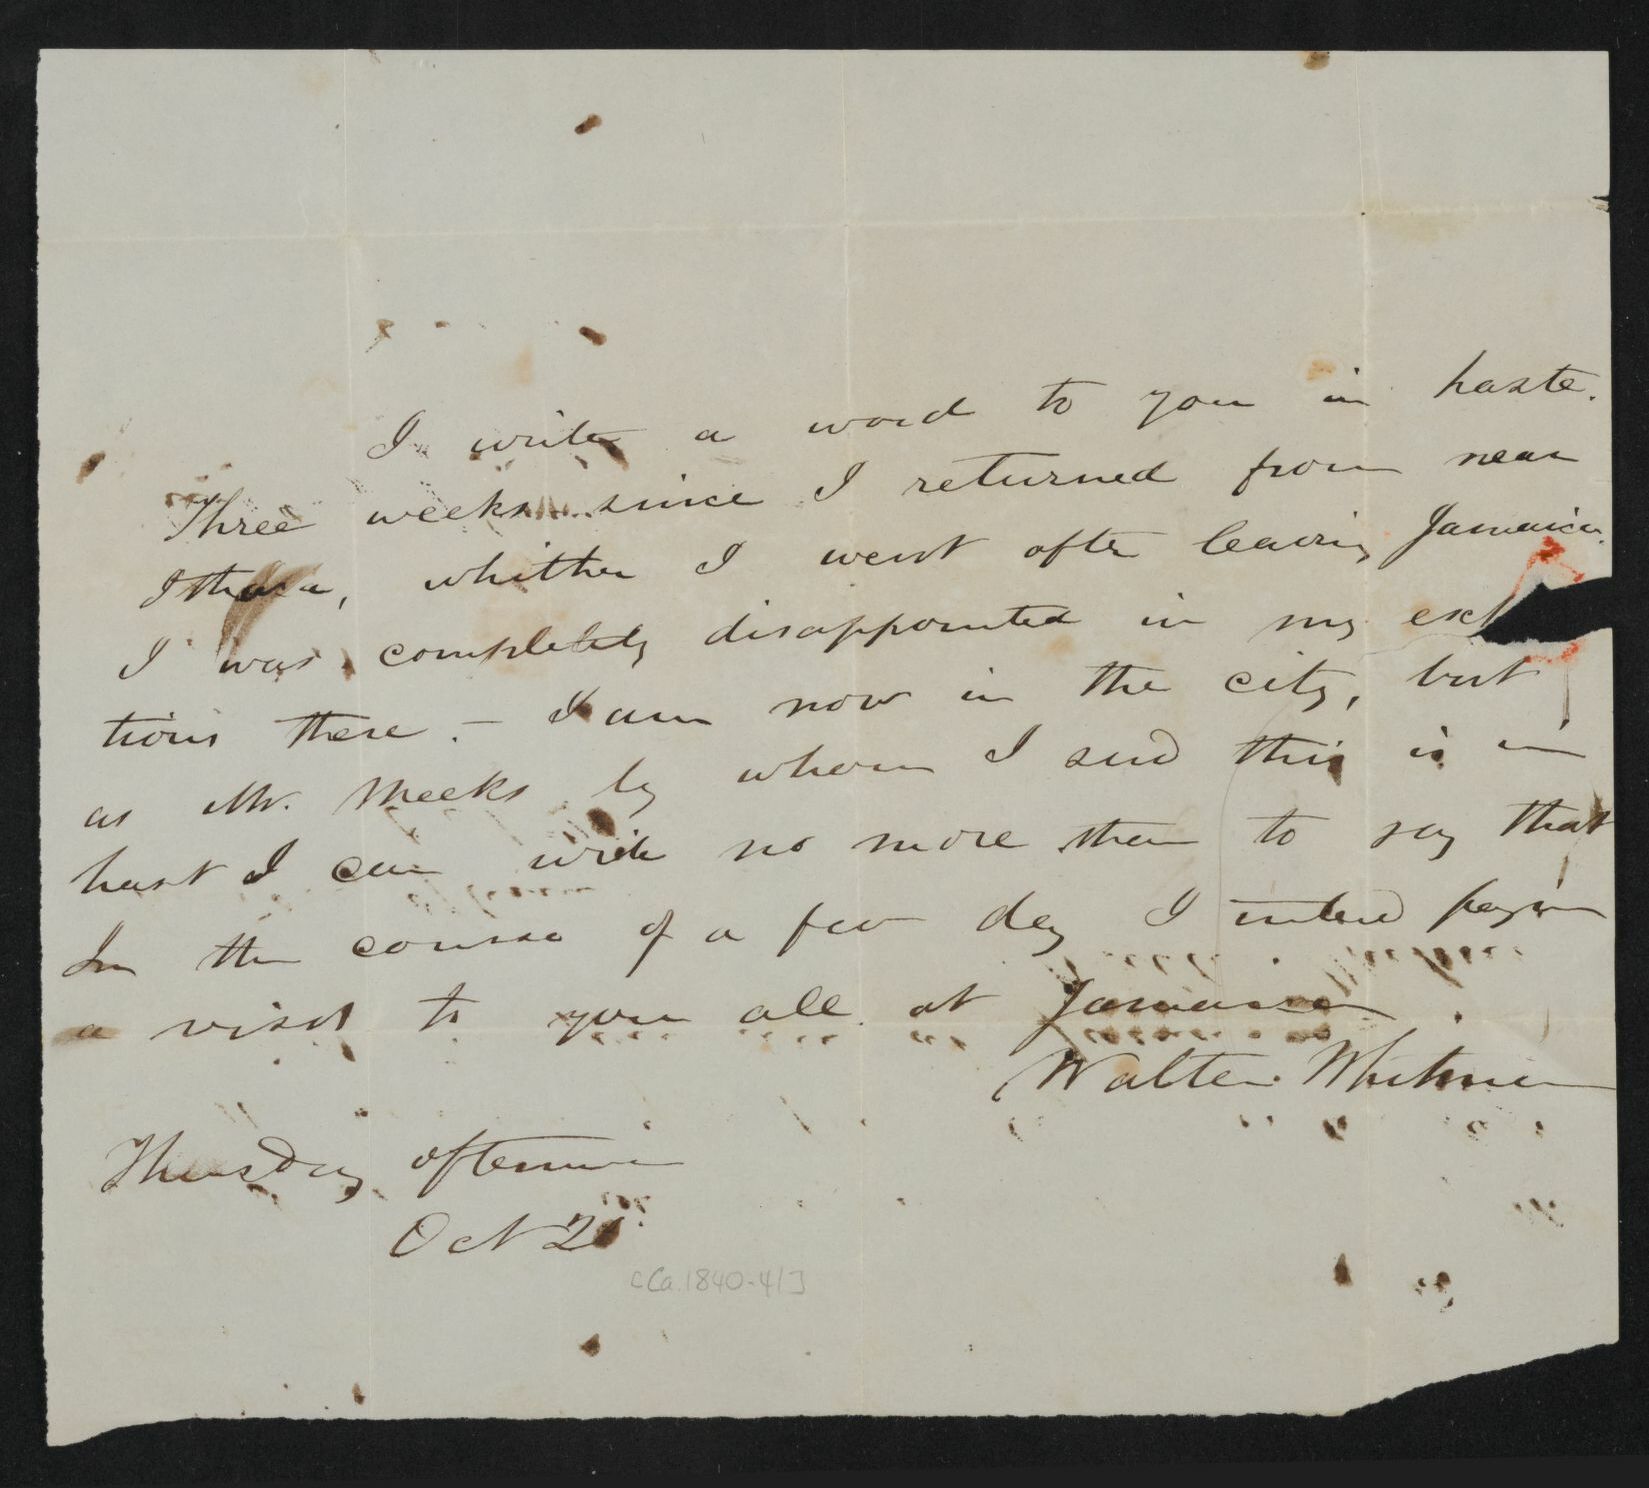 I write a word to you in haste.
Three weeks since I returned from near
Ithaca, whither I went after leaving Jamaica.
I was completely disappointed in my
tions there. — I am now in the city, but
as Mr. Meeks by whom I send this is in
hast I can write no more than to say that
In the course of a few day I intend
a visit to you all at Jamaica.
Walter Whitman
Thursday afternoon
Oct
[Ca. 1840-41]